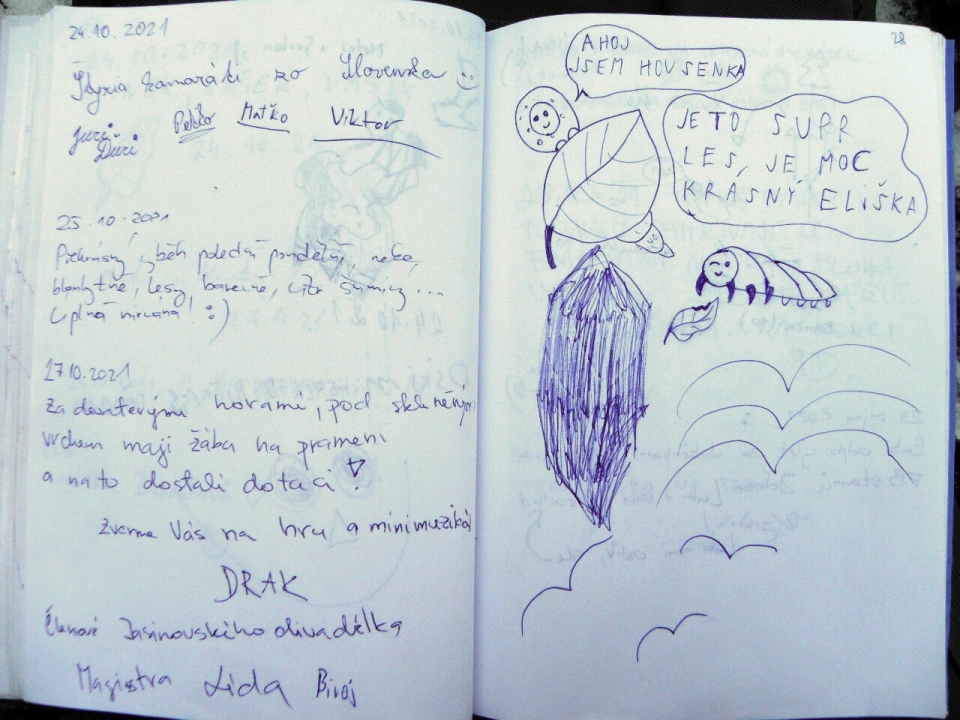 24.10.2021
kamaráti zo Slovenska :)
Juri Ďuri Peťko Maťko Viktor
25.10.2021
Překrásný, běh polední pondělní, nebe
blankytné, lesy barevné,
úplná nirvána :)
27.10.2021
Za devaterými horami, pod skleněným
vrchem mají žába na prameni
a na to dostali dotaci!
Zveme Vás na hru a minimuzikál
DRAK
Členové Jasinovského divadélka
Magistra Lída Bivoj
28
AHOJ
JSEM HOUSENKA
JE TO SUPR
LES, JE MOC
KRÁSNÝ ELIŠKA